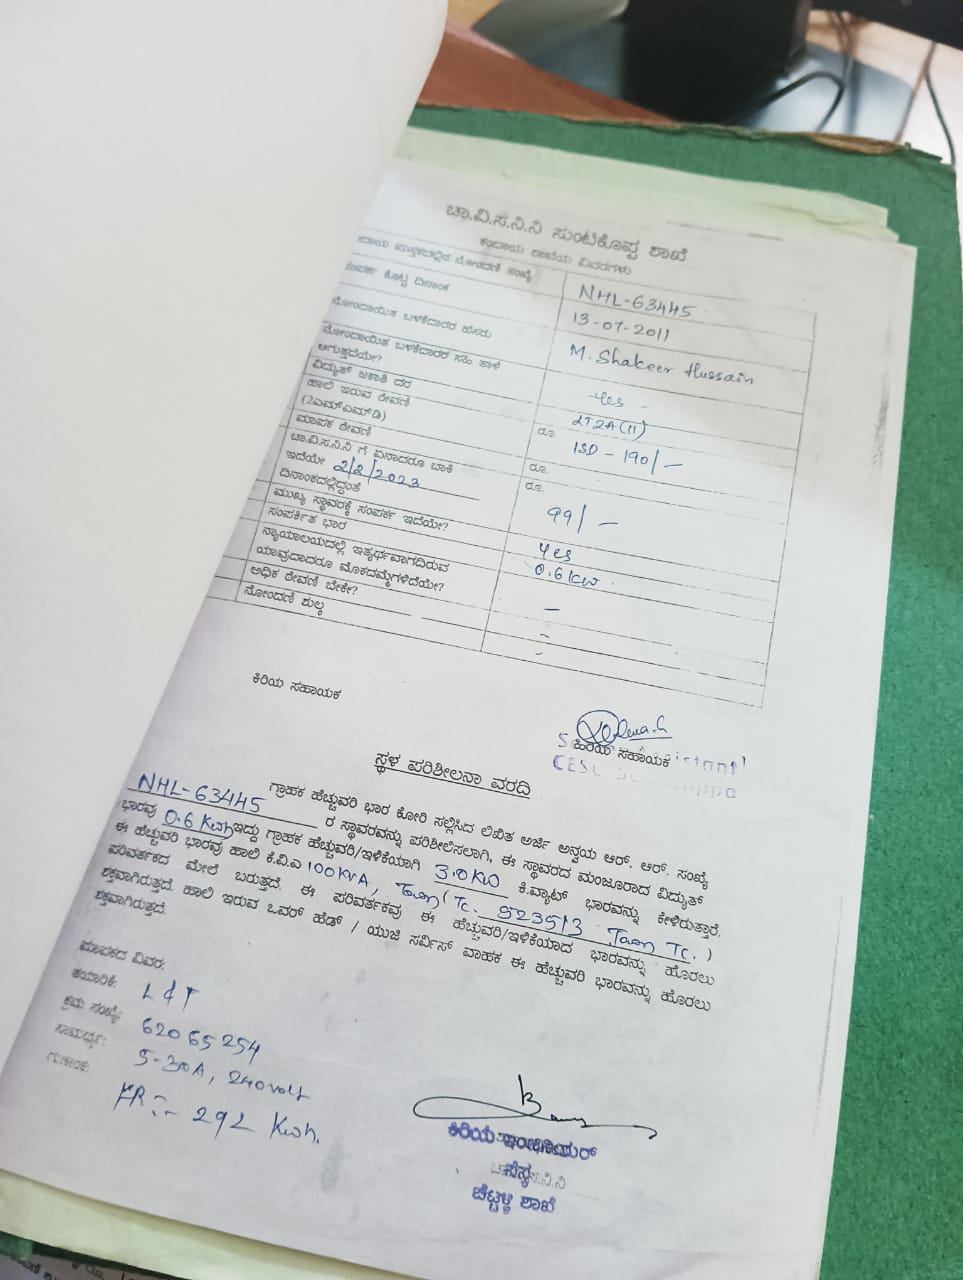 ಚಾ.ವಿ.ಸ.ನಿ.ನಿ ಸುಂಟಿಕೊಪ್ಪ ಶಾಖೆ
ಕಂದಾಯ ಶಾಖೆಯ ವಿವರಗಳು
ದಾಯ ಪುಸ್ತಕದಲ್ಲಿನ ನೋಂದಣಿ ಸಂಖ್ಯೆ NHL-63445
ಸಂಪರ್ಕ ಕೊಟ್ಟ ದಿನಾಂಕ 13-07-2011
ನೋಂದಾಯಿತ ಬಳಕೆದಾರರ ಹೆಸರು M. Shakeer Hussain
ನೋಂದಾಯಿತ ಬಳಕೆದಾರರ ಸಹಿ ತಾಳೆ
ಆಗುತ್ತದೆಯೇ? -Yes-
ವಿದ್ಯುತ್ ಜಕಾತಿ ದರ LT2A(II)
ಹಾಲಿ ಇರುವ ಠೇವಣಿ ರೂ. ISD - 190/-
(2ಎಮ್ಎಮ್‌ಡಿ)
ಮಾಪಕ ಠೇವಣಿ ರೂ.
ಚಾ.ವಿ.ಸ.ನಿ.ನಿ ಗೆ ಏನಾದರೂ ಬಾಕಿ ರೂ.
ಇದೆಯೇ 2/2/2023
ದಿನಾಂಕದಲ್ಲಿದ್ದಂತೆ 99/-
ಮುಖ್ಯ ಸ್ಥಾವರಕ್ಕೆ ಸಂಪರ್ಕ ಇದೆಯೇ? Yes
ಸಂಪರ್ಕಿತ ಭಾರ 0.6 KW
ನ್ಯಾಯಾಲಯದಲ್ಲಿ ಇತ್ಯರ್ಥವಾಗದಿರುವ
ಯಾವುದಾದರೂ ಮೊಕದಮ್ಮೆಗಳಿದೆಯೇ? -
ಅಧಿಕ ಠೇವಣಿ ಬೇಕೇ? -
ನೋಂದಣಿ ಶುಲ್ಕ -
ಕಿರಿಯ ಸಹಾಯಕ
ಹಿರಿಯ ಸಹಾಯಕ
CESC
ಸ್ಥಳ ಪರಿಶೀಲನಾ ವರದಿ
ಗ್ರಾಹಕ ಹೆಚ್ಚುವರಿ ಭಾರ ಕೋರಿ ಸಲ್ಲಿಸಿದ ಲಿಖಿತ ಅರ್ಜಿ ಅನ್ವಯ ಆರ್. ಆರ್. ಸಂಖ್ಯೆ
NHL-63445 ರ ಸ್ಥಾವರವನ್ನು ಪರಿಶೀಲಿಸಲಾಗಿ, ಈ ಸ್ಥಾವರದ ಮಂಜೂರಾದ ವಿದ್ಯುತ್
ಭಾರವು 0.6 Kwh ಇದ್ದು ಗ್ರಾಹಕ ಹೆಚ್ಚುವರಿ/ಇಳಿಕೆಯಾಗಿ 3.0 KW ಕಿ.ವ್ಯಾಟ್ ಭಾರವನ್ನು ಕೇಳಿರುತ್ತಾರೆ.
ಈ ಹೆಚ್ಚುವರಿ ಭಾರವು ಹಾಲಿ ಕೆ.ವಿ.ಎ 100 KVA, Taon (TC. 52351/3 Taon TC.)
ಪರಿವರ್ತಕದ ಮೇಲೆ ಬರುತ್ತದೆ. ಈ ಪರಿವರ್ತಕವು ಈ ಹೆಚ್ಚುವರಿ/ಇಳಿಕೆಯಾದ ಭಾರವನ್ನು ಹೊರಲು
ಶಕ್ತವಾಗಿರುತ್ತದೆ. ಹಾಲಿ ಇರುವ ಓವರ್ ಹೆಡ್ / ಯುಜಿ ಸರ್ವಿಸ್ ವಾಹಕ ಈ ಹೆಚ್ಚುವರಿ ಭಾರವನ್ನು ಹೊರಲು
ಶಕ್ತವಾಗಿರುತ್ತದೆ.
ಮಾಪಕದ ವಿವರ:
ತಯಾರಿಕೆ: L & T
ಕ್ರಮ ಸಂಖ್ಯೆ: 62065254
ಸಾಮರ್ಥ್ಯ: 5-30A, 240 volt
ಗುಣಾಂಕ:
FR:- 292 Kwh.
ಕಿರಿಯ ಇಂಜಿನಿಯರ್
ಚೆಟ್ಟಳ್ಳಿ ಶಾಖೆ